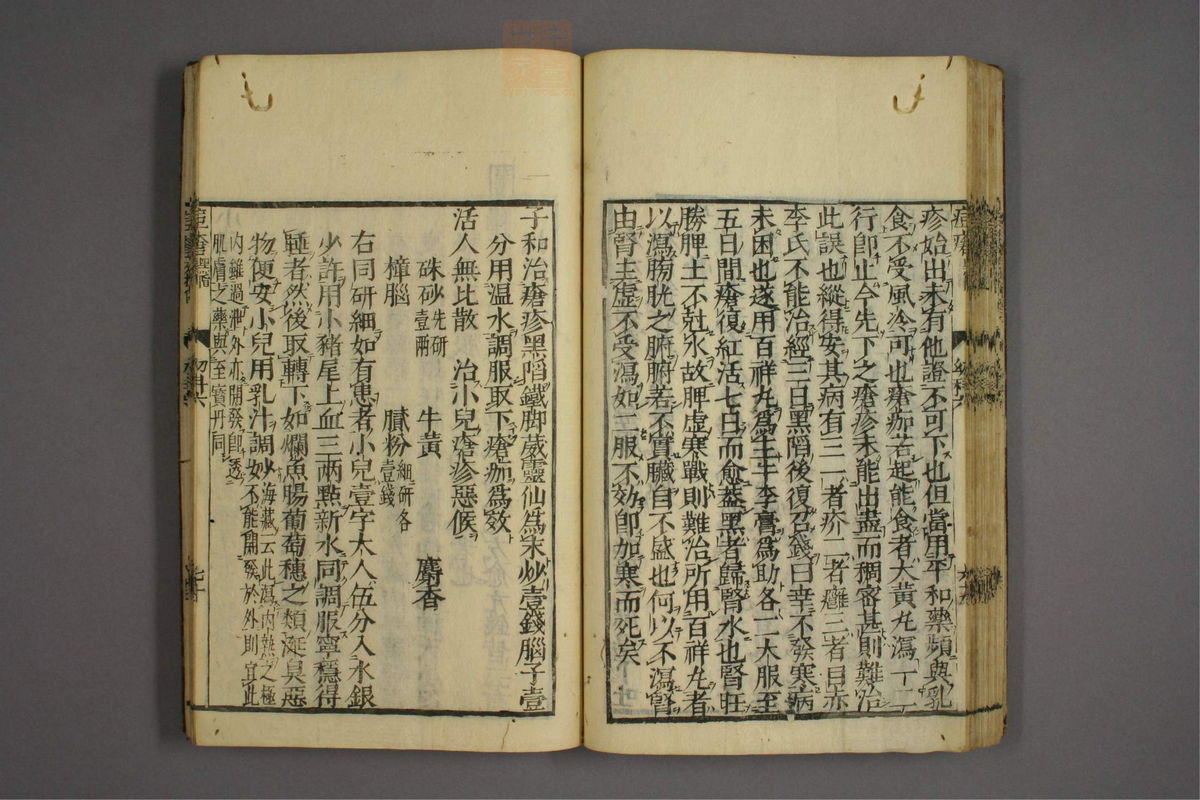 疹始出未有他證不可下也但當用平和藥頻與乳
食不受風冷可也瘡痂若起能食者大黃丸瀉一二
行即止今先下之瘡疹未能出盡而稠密甚則難治
此誤也縱得安其病有三一者疥二者癰三者目赤
李氏不能治經三日黑陷後復召錢曰幸不發寒病
未困也遂用百祥丸爲主牛李膏爲助各一大服至
五日間瘡復紅活七日而愈蓋黑者歸腎水也腎旺
勝脾土不尅水故脾虛寒戰則難治所用百祥丸者
以瀉膀胱之腑腑若不實臟自不盛也何以不瀉腎
由腎主虛不受瀉如二服不効即加寒而死矣
子和治瘡疹黑陷鐵脚葳靈仙爲末炒壹錢腦子壹
分用温水調服取下瘡痂爲效
活人無比散 治小兒瘡疹惡候
硃砂先研壹兩 牛黃 麝香
樟腦 膩粉細研各壹錢
右同研細如有患者小兒壹字大人伍分入水銀
少許用小猪尾上血三兩點新水同調服寧穩得
睡者然後取轉下如爛魚腸葡萄穗之類涎臭惡
物便安小兒用乳汁調妙海藏云此瀉内熱之極
不能開發於外則宜此
内雖過泄外亦開發即透
肌膚之藥與至寶丹同